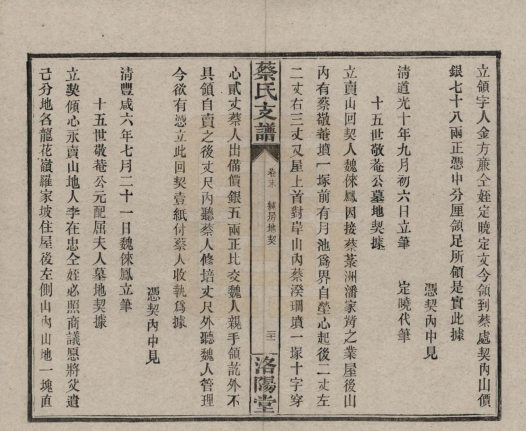 立領字人金方廉仝姪定曉定文今領到蔡處契內山價
銀七十八兩正憑中分厘領足所領是實此據
憑契內中見
清道光十年九月初六日立筆 定曉代筆
十五世敬菴公墓地契據
立賣山回契人魏倈鳳因接蔡棻洲潘家灣之業屋後山
內有蔡敬菴墳一塚前有月池爲界自塋心起後二丈左
二丈右三丈又屋上首對岸山內蔡湀珊墳一塚十字穿
蔡氏支譜
卷末
契
洛陽堂
心貳丈蔡人出備價銀五兩正比交魏人親手領訖外不
具領自賣之後丈尺內聽蔡人修培丈尺外聽魏人管理
今欲有憑立此回契壹紙付蔡人收執爲據
憑契內中見
清豐咸六年七月二十一日魏倈鳳立筆
十五世敬菴公元配屈夫人墓地契據
立契傾心永賣山地人李在忠仝姪必照商議愿將父遺
己分地名龍花嶺羅家坡住屋後左側山內山地一塊直